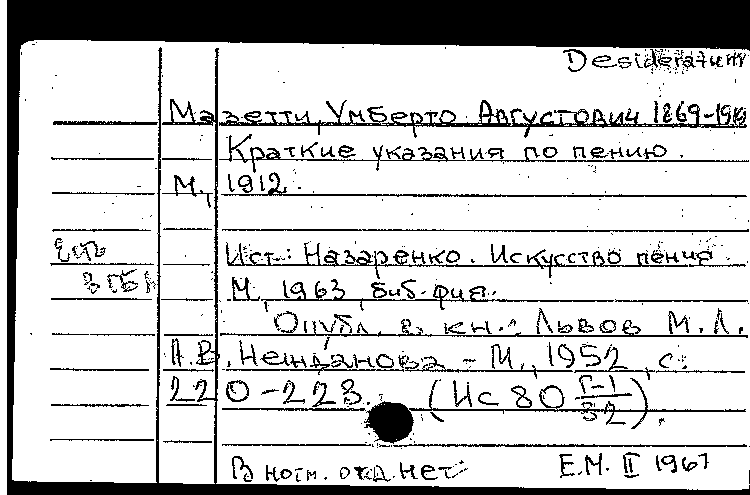 Desideratum
Мазетти, Умберто Августович 1869-19
Краткие указания по пению.
М., 1912.
Есть Ист.: Назаренко. Искусство пения
в ГБЛ М., 1963, библ-фия.
Опубл. в кн.: Львов М.Л.
А.В. Нежданова - М., 1952, с.
220-223. (Ис 80 Г-1/32).
В нотн. отд. нет
Е.М. II 1967